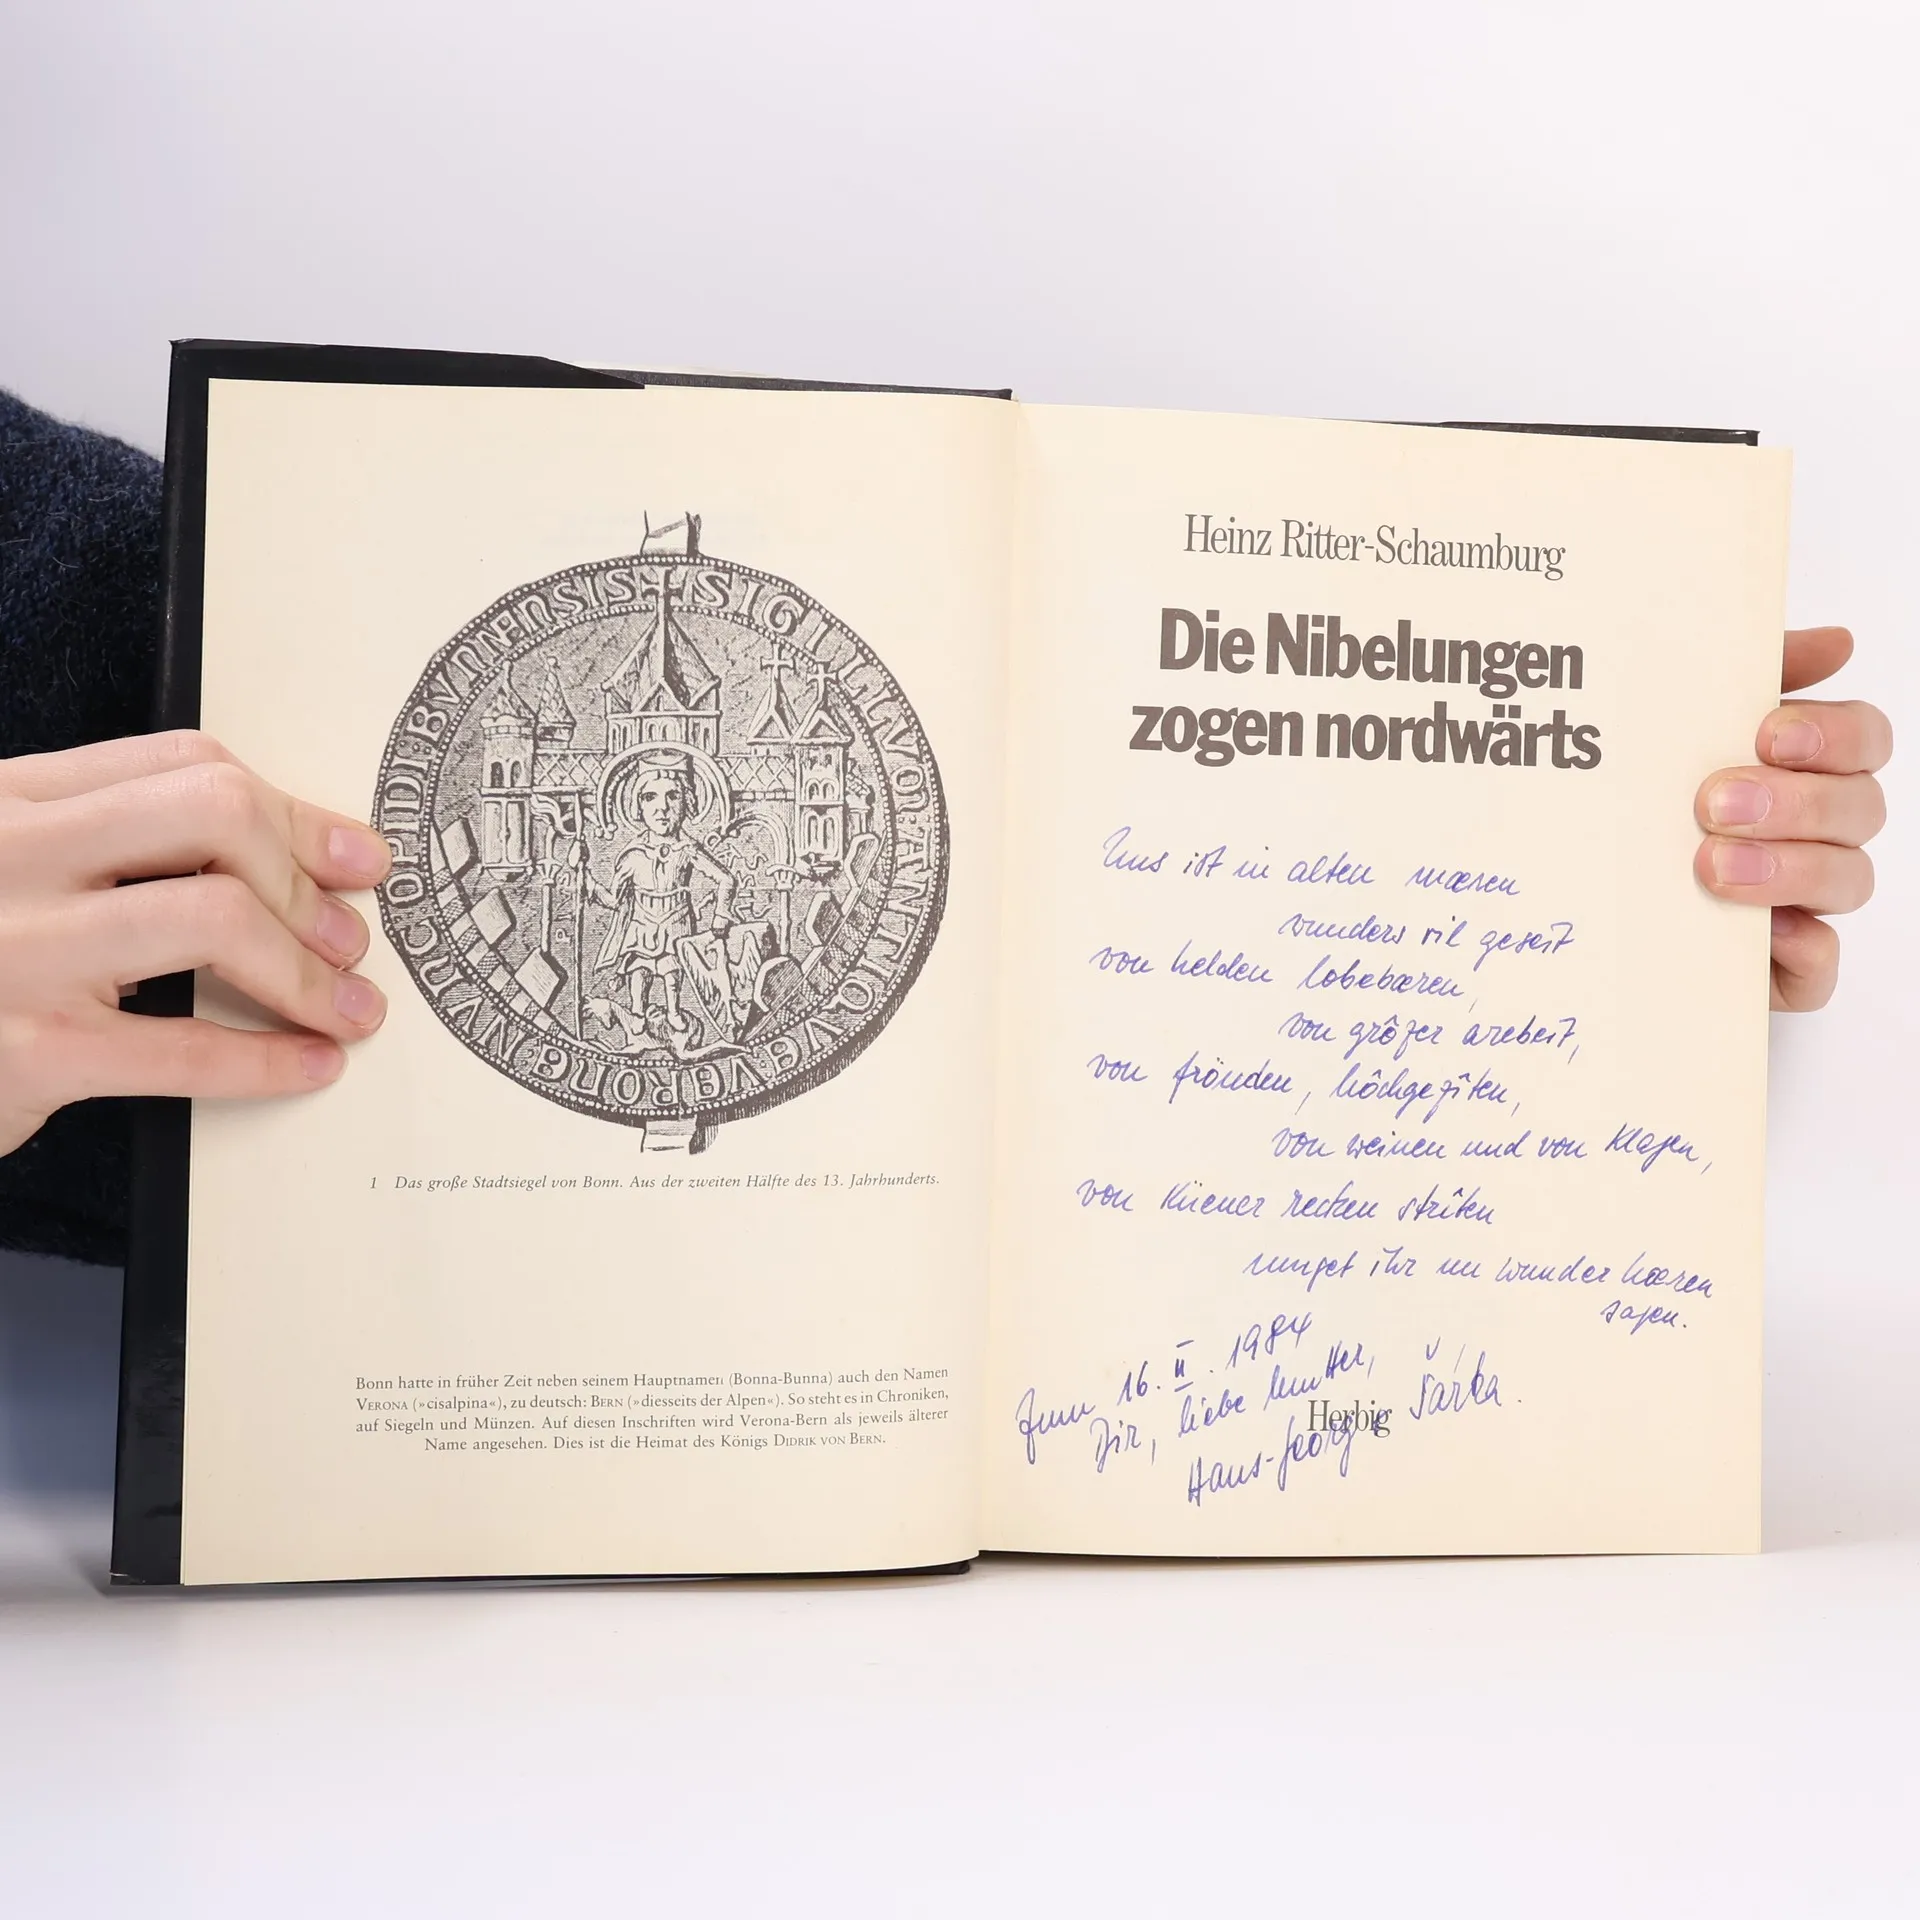 SIGILLVM: ANTIQVE: VERONE: NVNC: OPIDI: BVNNENSIS
1 Das große Stadtsiegel von Bonn. Aus der zweiten Hälfte des 13. Jahrhunderts.
Bonn hatte in früher Zeit neben seinem Hauptnamen (Bonna-Bunna) auch den Namen
VERONA (»cisalpina«), zu deutsch: BERN (»diesseits der Alpen«). So steht es in Chroniken,
auf Siegeln und Münzen. Auf diesen Inschriften wird Verona-Bern als jeweils älterer
Name angesehen. Dies ist die Heimat des Königs DIDRIK VON BERN.
Heinz Ritter-Schaumburg
Die Nibelungen
zogen nordwärts
Uns ist in alten mæren
wunders vil geseit
von helden lobebæren,
von grôzer arebeit,
von fröuden, hôchgezîten,
von weinen und von klagen,
von küener recken strîten
muget ihr nu wunder hæren
sagen.
Zum 16. II. 1984
Dir, liebe Mutter,
Hans-Georg + Šárka.
Herbig